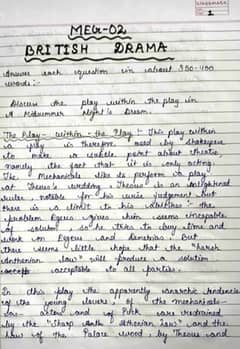 classmate
1
MEG-02
BRITISH DRAMA
Answer each question in about 350-400
words:-
Discuss the play within the play in
A Midsummer Night's Dream.
The Play-within-the Play:- This play within
a play is therefore used by Shakespeare
to make a subtle point about theatre,
namely the fact that it is only acting.
The Mechanicals like to perform a play
at Theseus's wedding. Theseus is an enlightened
ruler, notable for his wise judgement but
there is a limit to his abilities - the
problem Egeus gives him seems incapable
of solution, so he tries to buy time and
work on Egeus and Demetrius. But
there seems little hope that the "harsh
Athenian law" will produce a solution
acceptable to all parties.
In this play the apparently anarchic tendencies
of the young lovers, of the mechanicals-
as-actors and of Puck are restrained
by the "Sharp Athenian law" and the
law of the Palace wood, by Theseus and